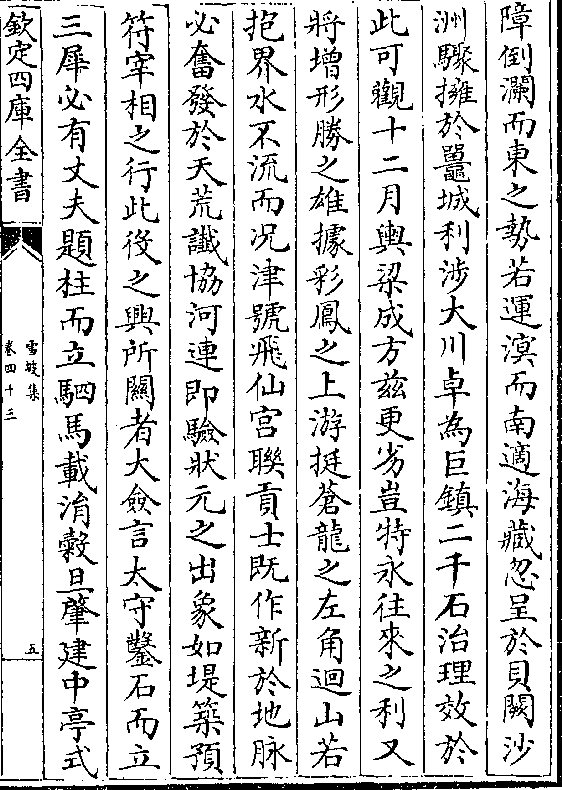 障倒瀾而東之勢若運溟而南適海藏忽呈於貝闕沙
洲驟擁於鼉城利涉大川卓為巨鎮二千石治理效於
此可觀十二月輿梁成方兹更劣豈特永往來之利又
將增形勝之雄據彩鳳之上游挺蒼龍之左角迴山若
抱界水不流而况津號飛仙宫聯貢士既作新於地脉
必奮發於天荒讖協河連即驗狀元之出象如堤築預
符宰相之行此役之興所關者大僉言太守鑿石而立
三犀必有丈夫題柱而立駟馬載涓榖旦肇建中亭式
欽定四庫全書
雪坡集
卷四十三
五